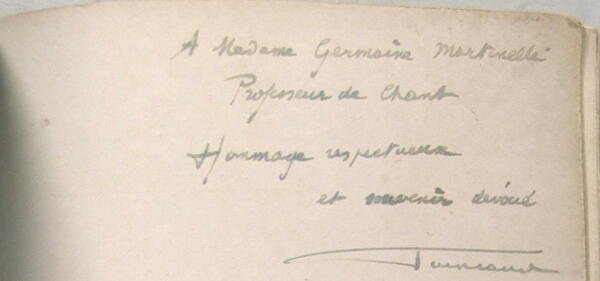 A Madame Germaine Martinelli
Professeur de Chant
Hommage respectueux
et souvenir dévoué